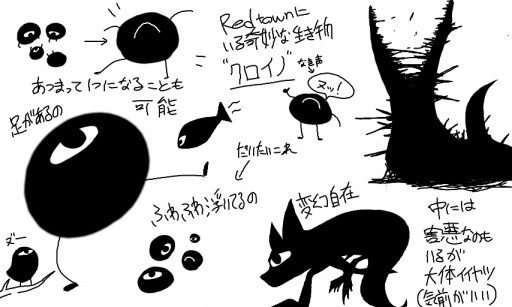 Red townに
いる奇妙な生き物
"クロイノ"
なき声
ヌッ!
あつまって1つになることも
可能
足があるの
だいたいこれ
ふわふわ浮いてるの
変幻自在
中には
害悪なのも
いるが
大体イイヤツ
(気前がいい)